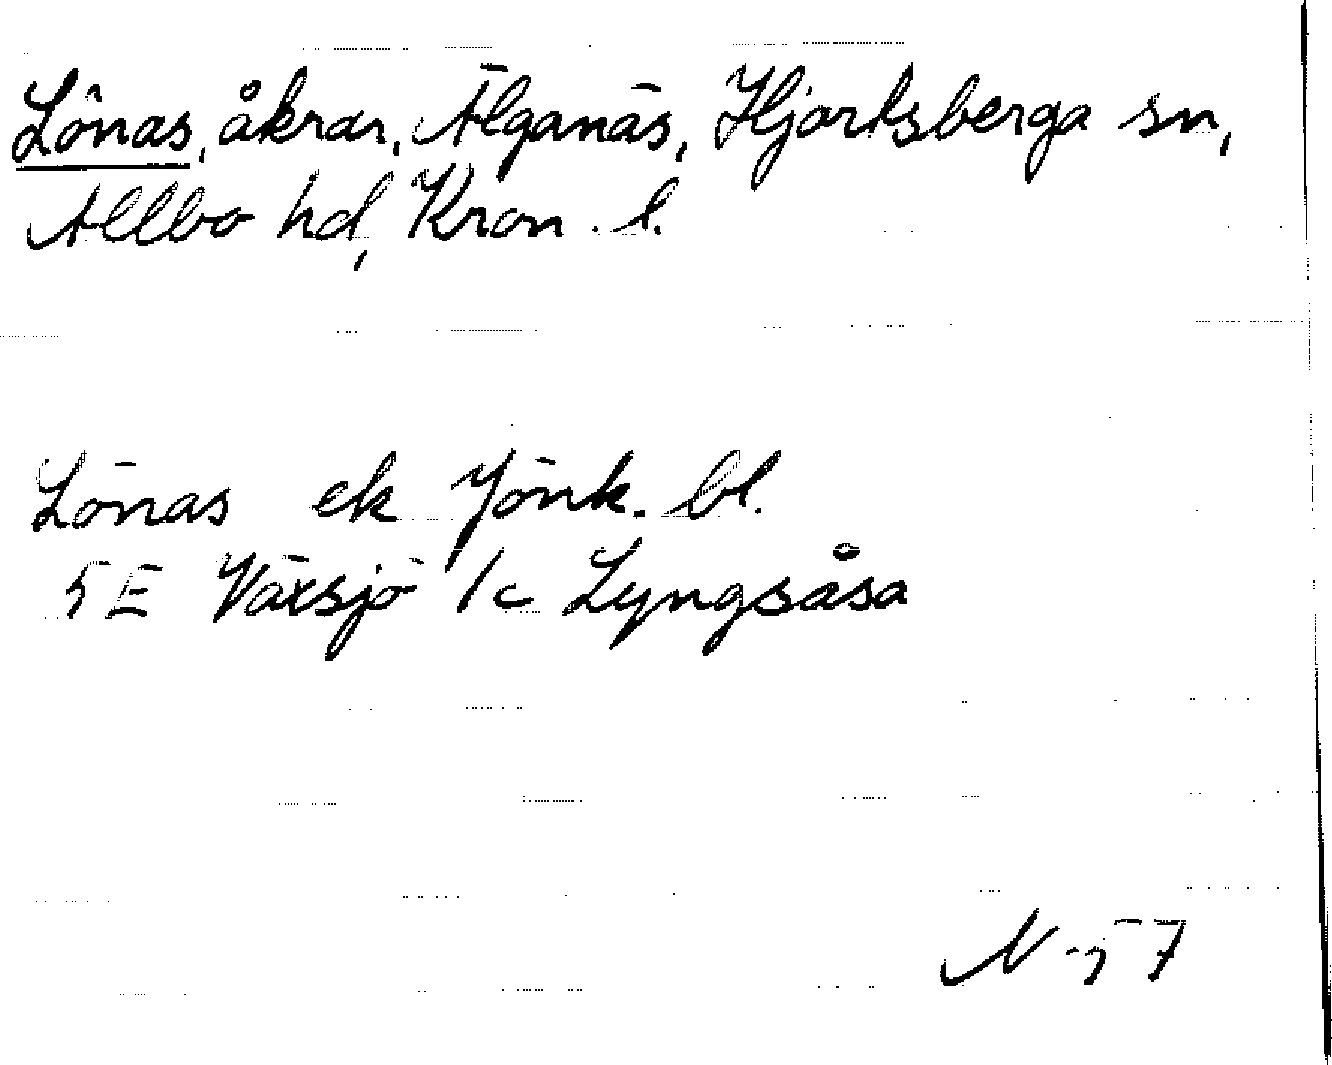 Lönas, åkrar, Älganäs, Hjortsberga sn,
Allbo hd, Kron. l.
Lönas ek Jönk. bl.
5E Växsjö 1c Lyngsåsa
N-57